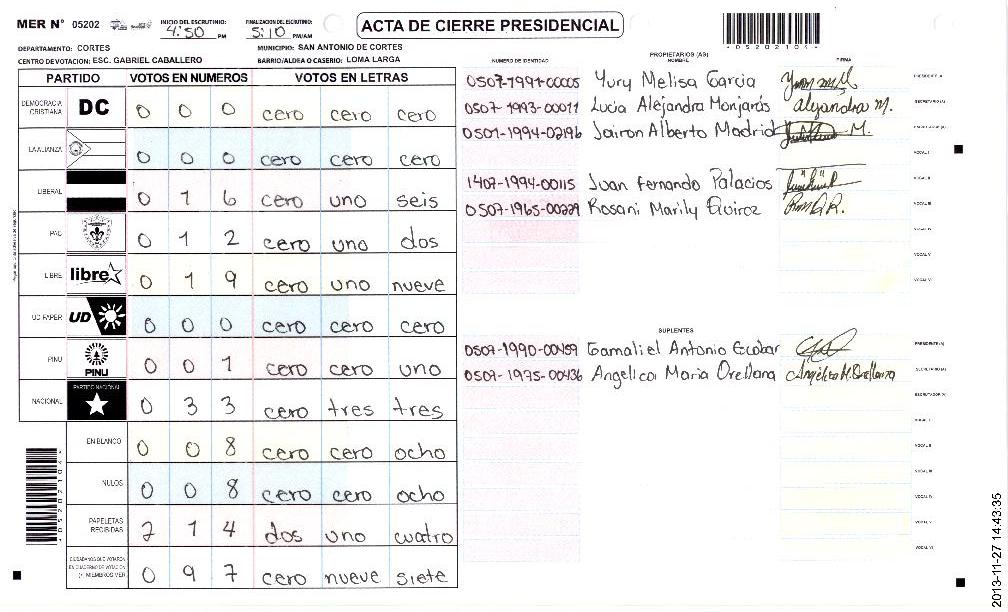 MER N° 05202 INICIO DEL ESCRUTINIO: 4:50 PM FINALIZACION DEL ESCRUTINIO: 5:10 PM/AM ACTA DE CIERRE PRESIDENCIAL
DEPARTAMENTO: CORTES MUNICIPIO: SAN ANTONIO DE CORTES
CENTRO DE VOTACION: ESC. GABRIEL CABALLERO BARRIO/ALDEA O CASERIO: LOMA LARGA
-05202104-
PARTIDO VOTOS EN NUMEROS VOTOS EN LETRAS
DEMOCRACIA CRISTIANA DC 0 0 0 cero cero cero
LA ALIANZA 0 0 0 cero cero cero
LIBERAL 0 1 6 cero uno seis
PAC 0 1 2 cero uno dos
LIBRE libre 0 1 9 cero uno nueve
UD FAPER UD 0 0 0 cero cero cero
PINU PINU 0 0 1 cero cero uno
NACIONAL PARTIDO NACIONAL 0 3 3 cero tres tres
EN BLANCO 0 0 8 cero cero ocho
NULOS 0 0 8 cero cero ocho
PAPELETAS RECIBIDAS 2 1 4 dos uno cuatro
CIUDADANOS QUE VOTARON EN CUADERNO DE VOTACION (+) MIEMBROS MER 0 9 7 cero nueve siete
-05202104-
PROPIETARIOS (AS)
NUMERO DE IDENTIDAD NOMBRE FIRMA
0507-1991-00005 Yury Melisa Garcia PRESIDENTE (A)
0507-1993-00011 Lucia Alejandra Monjarás alejandra M. SECRETARIO (A)
0501-1994-02196 Jairon Alberto Madrid M. ESCRUTADOR (A)
VOCAL I
1407-1994-00115 Juan Fernando Palacios VOCAL II
0507-1965-00229 Rosani Marily Quiroz VOCAL III
VOCAL IV
VOCAL V
VOCAL VI
SUPLENTES
0507-1990-00459 Gamaliel Antonio Escobar PRESIDENTE (A)
0507-1975-00436 Angelica Maria Orellana Angélica M. Orellana SECRETARIO (A)
ESCRUTADOR (A)
VOCAL I
VOCAL II
VOCAL III
VOCAL IV
VOCAL V
VOCAL VI
2013-11-27 14:43:35